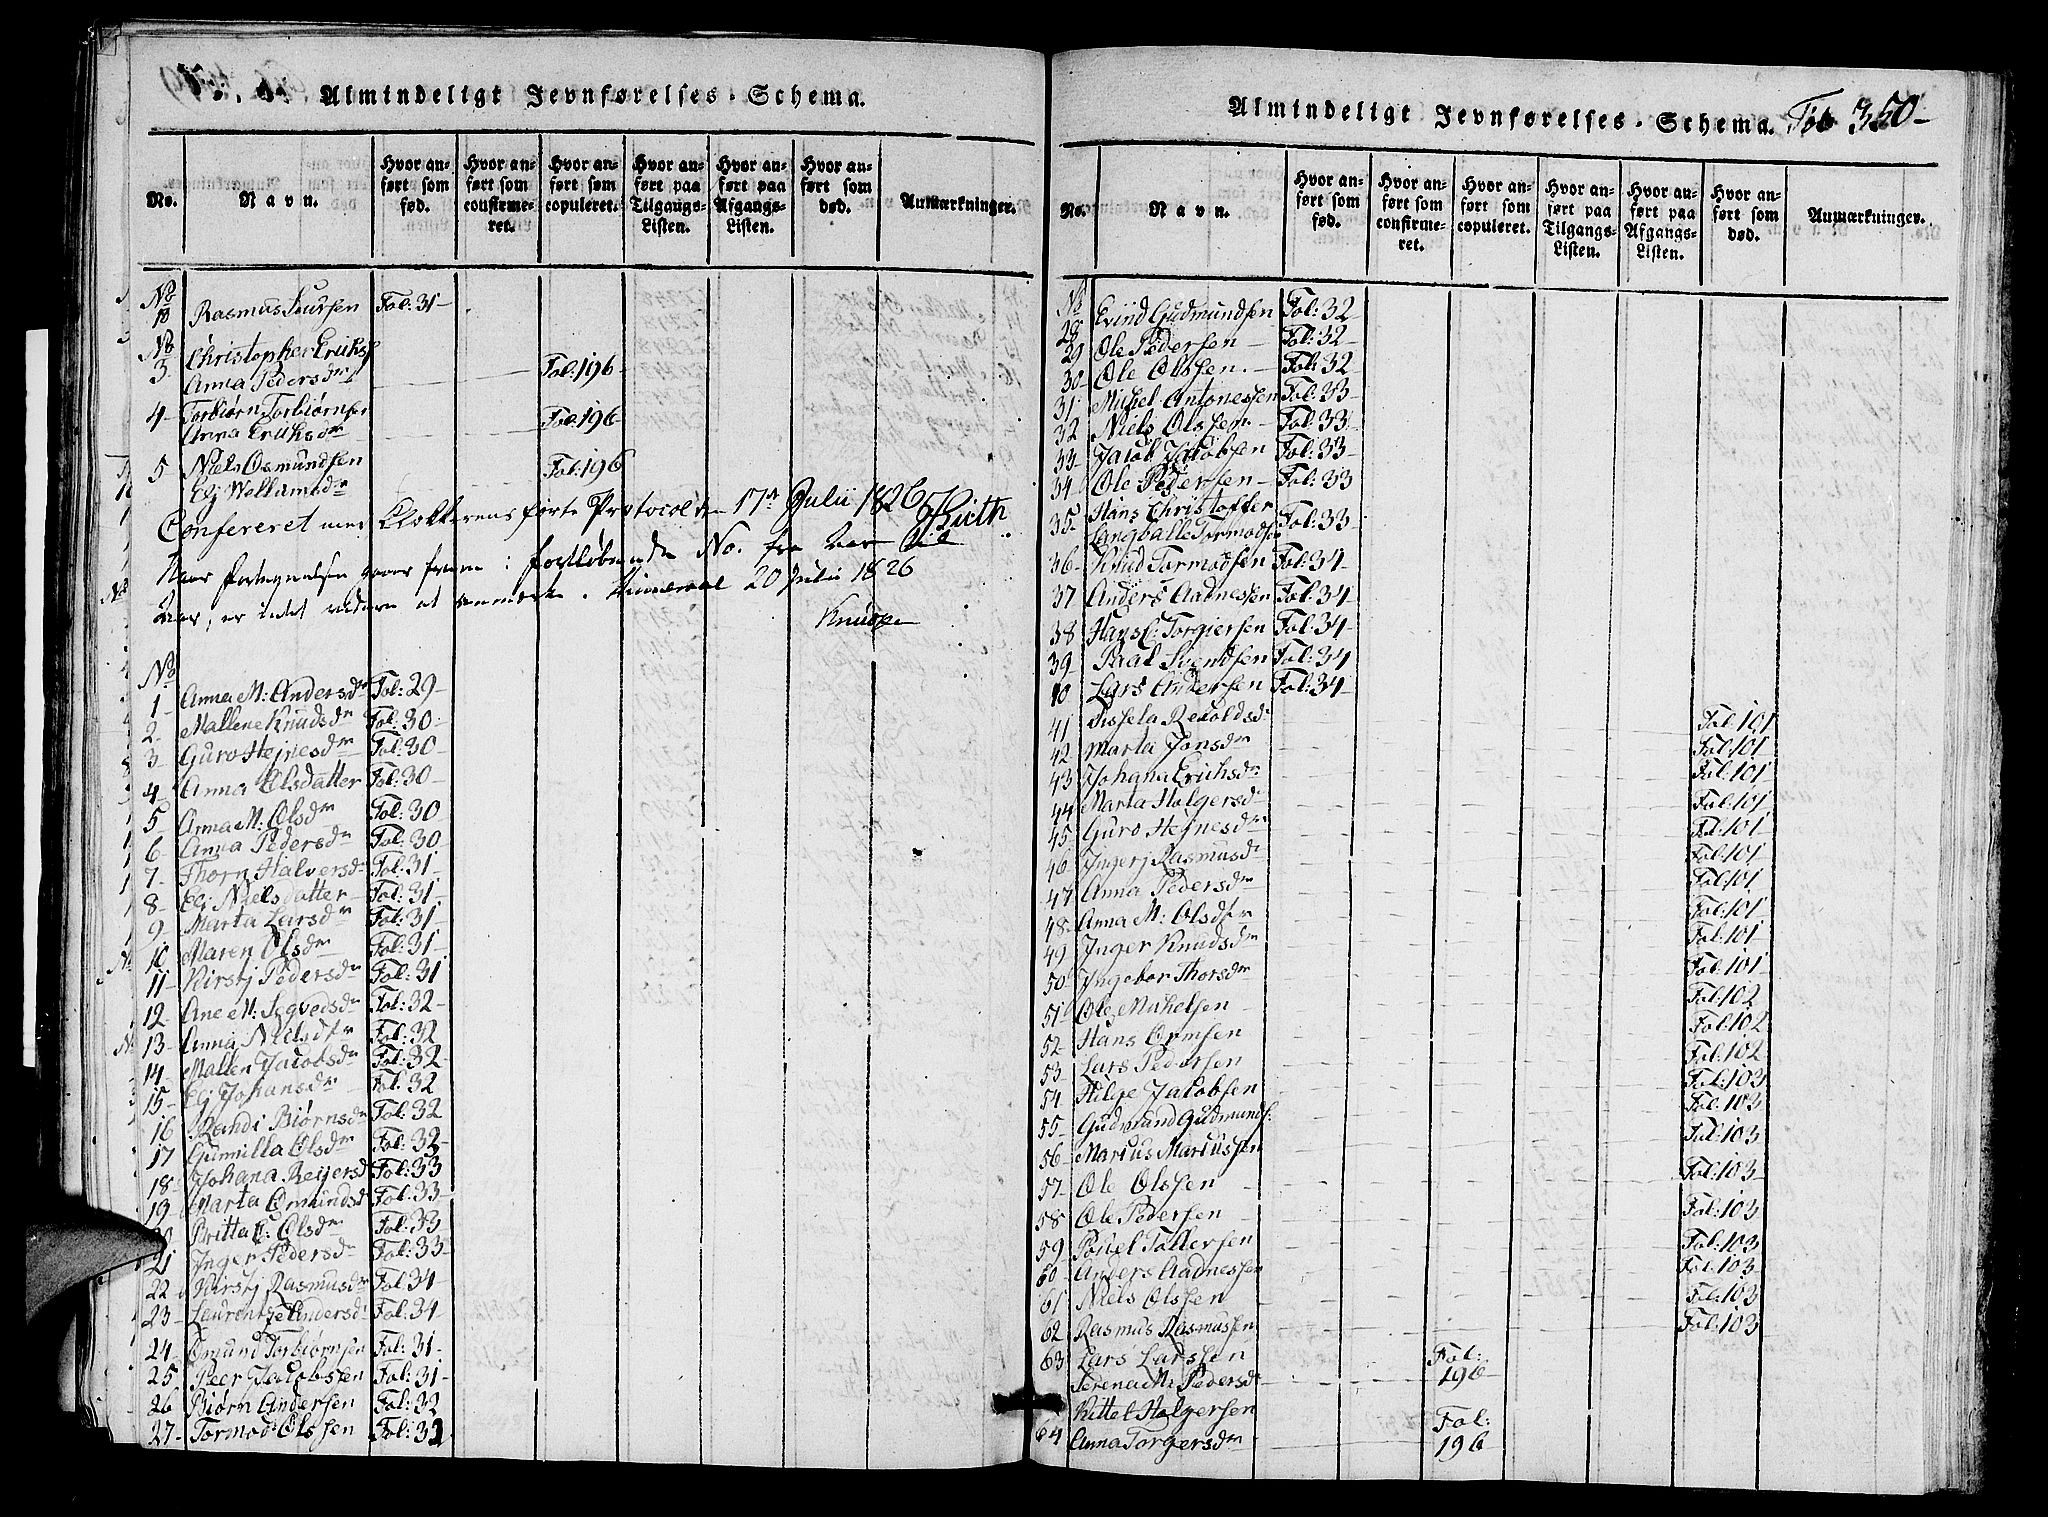 Almindeligt Jevnførelses-Schema.
No. Navn. Hvor anført som fød. Hvor anført som confirmeret. Hvor anført som copuleret. Hvor anført paa Tilgangs-Listen. Hvor anført paa Afgangs-Listen. Hvor anført som død. Anmærkninger.
No
10 Rasmus Fol: 31-
No Christopher Eriks
3- Anna Pedersdr Fol: 196-
4- Torbiørn Torbiørnsen
Anna Eriksdr Fol: 196-
5 Niels Osmundsen
Elj Wellumsdr Fol: 196
Confereret med Klokkerens førte Protocol den 17de Julii 1826
fortløbende No. fra
20 Julii 1826
Knudsen
No
1- Anna M: Andersdr Fol: 29-
2- Mallene Knudsdr Fol: 30-
3- Guro Hejnesdr Fol: 30-
4- Anna Olsdatter Fol: 30-
5- Anna M: Olsdr Fol: 30
6- Anna Pedersdr Fol: 30
7- Thorn Halversdr Fol: 31-
8- Elj Nielsdatter Fol: 31-
9- Marta Larsdr Fol: 31-
10- Maren Olsdr Fol: 31-
11- Kirstj Pedersdr Fol: 31
12- Ane M: Sygvedsdr Fol: 32-
13- Anna Nielsdtr Fol: 32
14- Mallen Jacobsdr Fol: 32-
15- Elj Johansdr Fol: 32
16 Randi Biørnsdr Fol: 32
17 Gunnilla Olsdr Fol: 32-
18- Johana Reijersd Fol: 33
19- Marta Omundsd Fol: 33-
20 Britta C: Olsdr Fol: 33
21 Inger Pedersdr Fol: 33-
22 Kirstj Rasmusdr Fol: 34-
23- Laurentze Andersd Fol: 34
24- Omund Torbiørnsen Fol: 31-
25 Peer Jacobsen Fol: 31-
26 Biørn Andersen Fol: 32
27- Tormod Olssen Fol: 32
Almindeligt Jevnførelses-Schema. Fol 350-
No. Navn. Hvor anført som fød. Hvor anført som confirmeret. Hvor anført som copuleret. Hvor anført paa Tilgangs-Listen. Hvor anført paa Afgangs-Listen. Hvor anført som død. Anmærkninger.
No
28 Evind Gudmundsen Fol: 32
29 Ole Pedersen - Fol: 32-
30- Ole Olssen. - Fol: 32
31- Mickel Antonessen Fol: 33
32 Niels Olssen. - Fol: 33-
33- Jacob Jacobsen Fol: 33-
34- Ole Pedersen - Fol: 33
35- Hans Christoffer
Langballe Tormodsen Fol: 33-
36- Knud Tormodsen Fol: 34
37 Anders Aadnessen Fol: 34-
38 Hans C: Torgiersen Fol: 34-
39 Paal Svendsen Fol: 34
40 Lars Andersen Fol: 34-
41 Sissela Reioldsd Fol: 101
42 Marta Jonsdr Fol: 101
43 Johana Eriksdr Fol: 101
44 Marta Holgersd Fol: 101
45 Guro Hejnesdr Fol: 101
46 Ingerj Rasmusd Fol: 101
47 Anna Pedersdr Fol: 101
48- Anna M: Olsdtr Fol: 101
49 Inger Knudsdr Fol: 101
50 Ingebor Thorsdr Fol: 101
51 Ole Mickelsen Fol: 102
52- Hans Ormsen Fol: 102
53- Lars Pedersen Fol: 102
54 Helge Jacobsen Fol: 103
55- Gudmund Gudmunds: Fol: 103
56- Marius Mariussen Fol: 103
57- Ole Olssen - Fol: 103
58- Ole Pedersen Fol: 103
59 Pouel Tollefsen Fol: 103
60 Anders Aadnessen Fol: 103
61 Niels Olssen Fol: 103
62 Rasmus Rasmussen Fol: 103
63 Lars Larssen Fol:
Serena M: Pedersd 196-
Kittel Holgersen Fol:
64 Anna Torgersdr 196